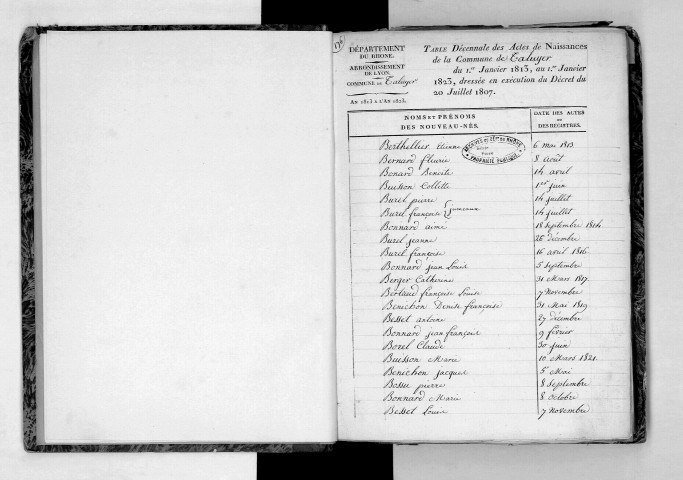 DÉPARTEMENT
DU RHONE.
ARRONDISSEMENT
DE LYON.
COMMUNE DE Taluyer
AN 1813 A L'AN 1823.
TABLE Décennale des Actes de Naissances
de la Commune de Taluyer
du 1.er Janvier 1813, au 1.er Janvier
1823, dressée en exécution du Décret du
20 Juillet 1807.
NOMS ET PRÉNOMS
DES NOUVEAU-NÉS.
DATE DES ACTES
OU
DES REGISTRES.
ARCHIVES DU DÉPT DU RHONE
PROPRIÉTÉ PUBLIQUE
Berthellier Etienne 6 mai 1813.
Bernard fleurie 8 août
Bonard Benoite 14 avril
Buisson Collette 1er juin
Burel pierre 14 juillet
Burel françoise jumeaux 14 juillet
Bonnard aimé 18 Septembre 1814.
Burel jeanne 26 décembre
Burel françoise 16 avril 1816.
Bonnard jean Louis 5 Septembre
Berger Catherine 31 Mars 1817.
Bertaud françoise Louise 7 Novembre
Benichon Denise françoise 31 Mai 1819
Besset antoine 27 décembre
Bonnard jean françois 9 février
Borel Claude 30 juin
Buisson Marie 10 Mars 1821.
Benichon jacques 5 Mai
Bossu pierre 8 Septembre
Bonnard Marie 8 Octobre
Besset Louis 7 Novembre